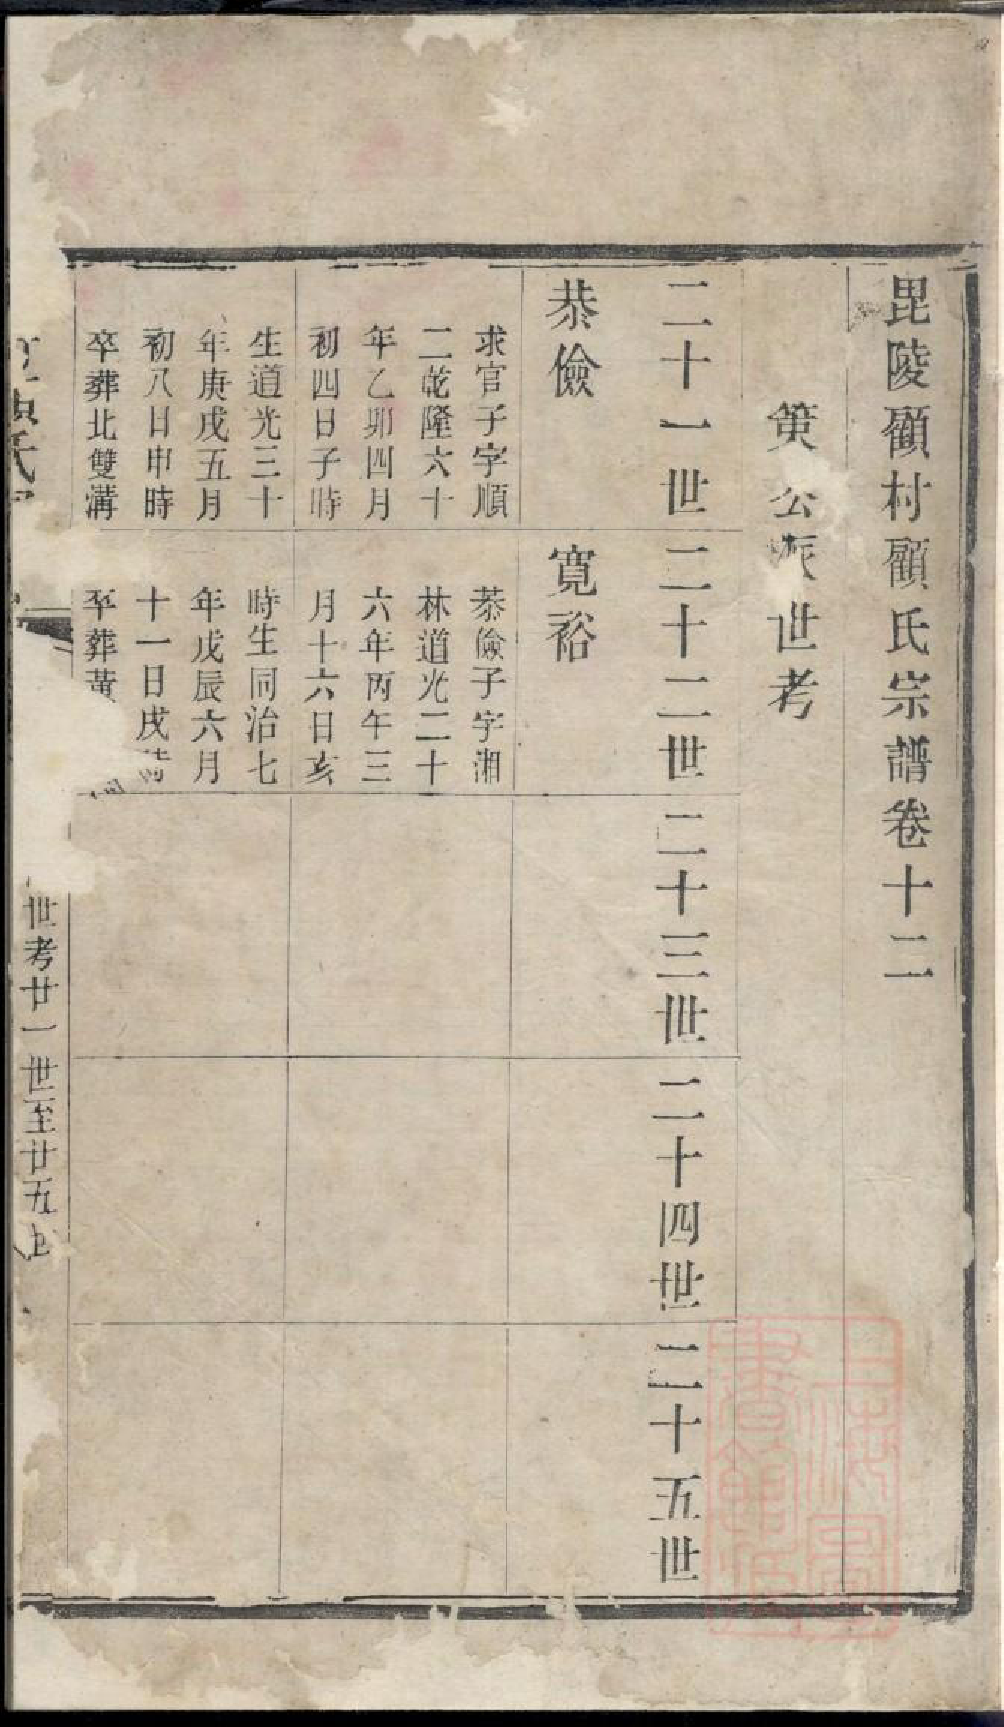 毘陵顧村顧氏宗譜卷十二
公派世考
二十一世
二十二世
二十三世
二十四世
二十五世
恭儉
求官子字順
二乾隆六十
年乙卯四月
初四日子時
生道光三十
年庚戌五月
初八日申時
卒葬北雙溝
寬裕
恭儉子字湘
林道光二十
六年丙午三
月十六日亥
時生同治七
年戊辰六月
十一日戌時
卒葬黃
世考廿一世至廿五世
上海圖書館藏